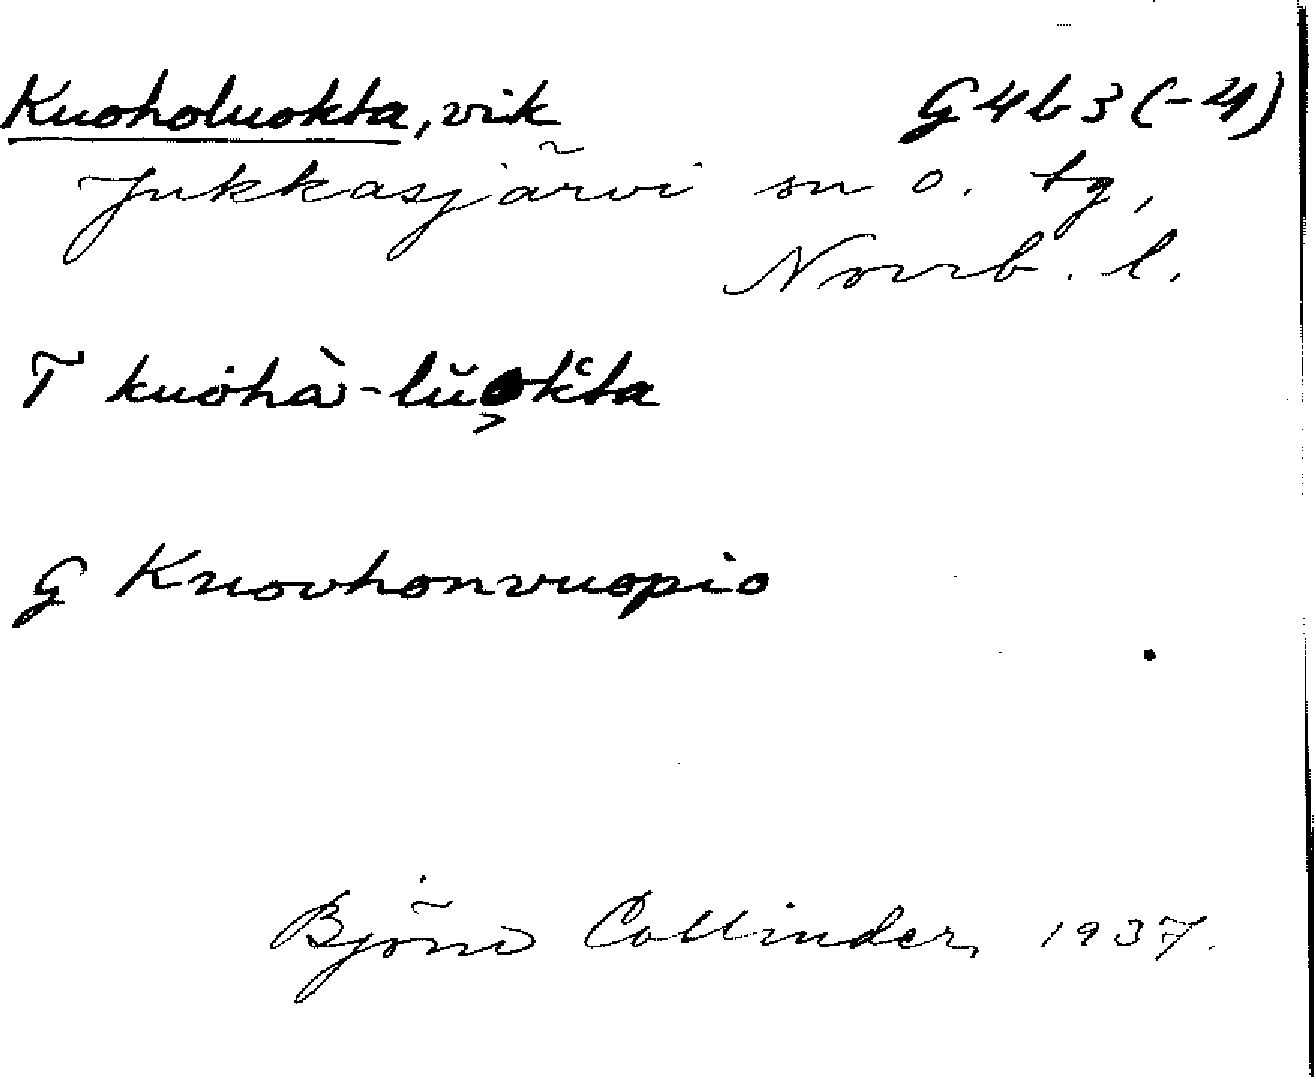 Kuoholuokta, vik G4b3(-4)
Jukkasjärvi sn o. tg,
Norrb. l.
T kuohà-lŭokta
G Kuovhonvuopio
Björn Collinder, 1937.